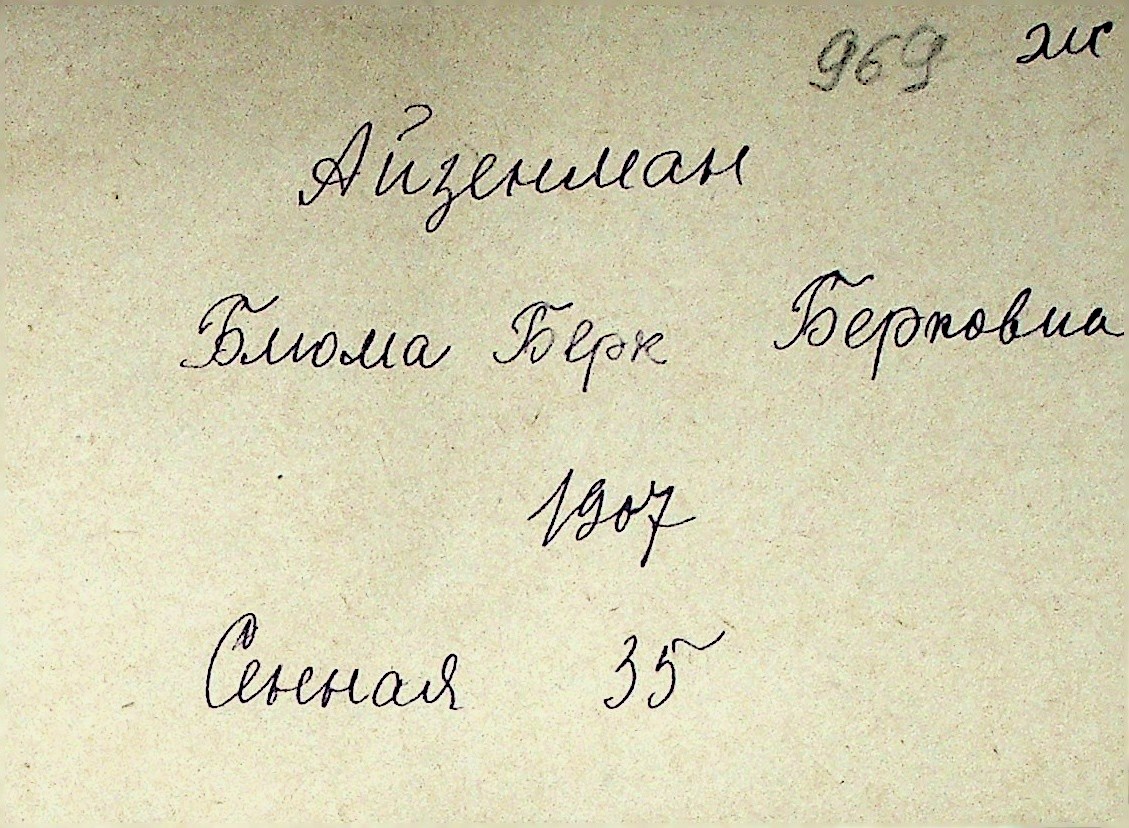 969 ж
Айзенман
Блюма Берк Берковна
1907
Сенная 35